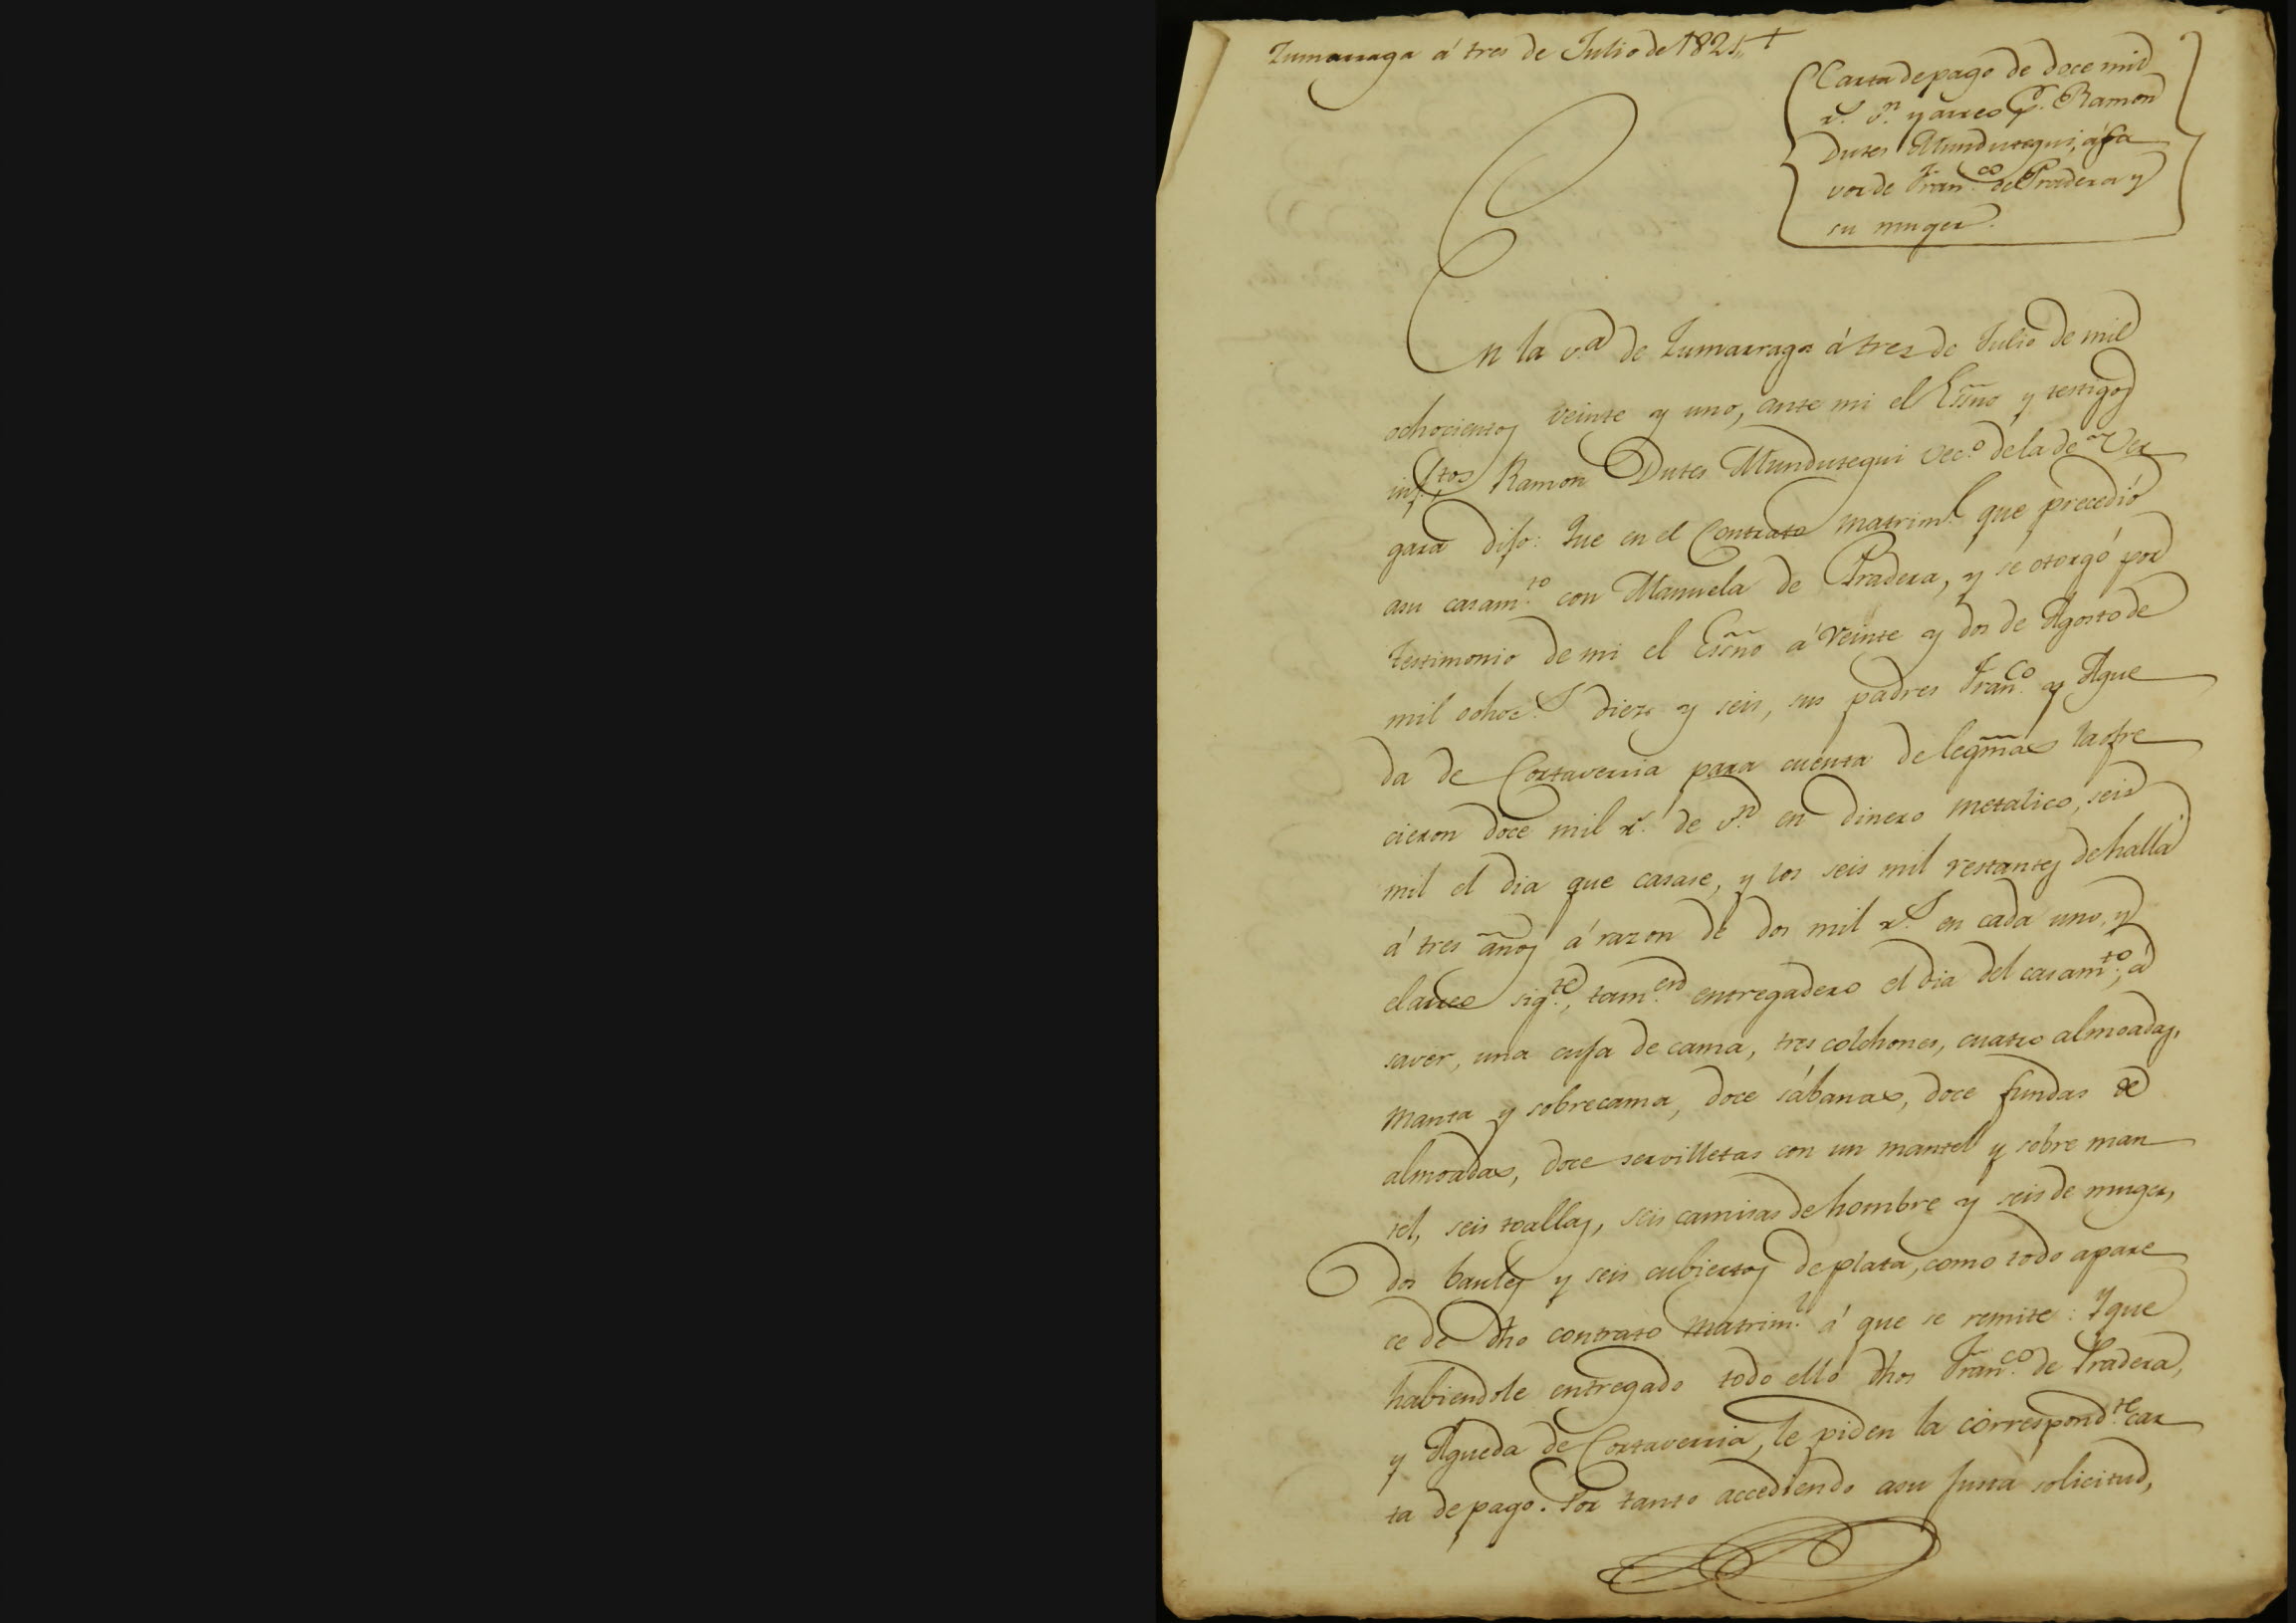 Zumarraga á tres de Julio de 1821 +
Carta de pago de doce mil
r.s v.n y arreo p.r Ramon
Dutes Mundutegui, á fa
vor de Fran.co de Pradera y
su muger.
En la v.a de Zumarraga á tres de Julio de mil
ochocientos veinte y uno, ante mi el Esño y testigos
inf.tos Ramon Dutes Mundutegui vec.o de la de Ver
gara dijo: Que en el Contrato matrim.l que precedió
asu casam.to con Manuela de Pradera, y se otorgó por
testimonio de mi el Escño á veinte y dos de Agosto de
mil ochoc.s diez y seis, sus padres Fran.co y Ague
da de Cortaverria para cuenta de legmas la ofre
cieron doce mil r.s de v.n en dinero metalico, seis
mil el dia que casase, y los seis mil restantes de halla
á tres años á razon de dos mil r.s en cada uno, y
el arreo sig.te, tam.en entregadero el dia del casam.to, á
saver, una cuja de cama, tres colchones, cuatro almoadas,
manta y sobrecama, doce sábanas, doce fundas de
almoadas, doce servilletas con un mantel y sobre man
tel, seis toallas, seis camisas de hombre y seis de muger,
dos baules y seis cubiertos de plata, como todo apare
ce de dho contrato matrim.l á que se remite: Y que
habiendole entregado todo ello dhos Fran.co de Pradera,
y Agueda de Cortaverria, le piden la correspond.te car
ta de pago. Por tanto accediendo asu justa solicitud,